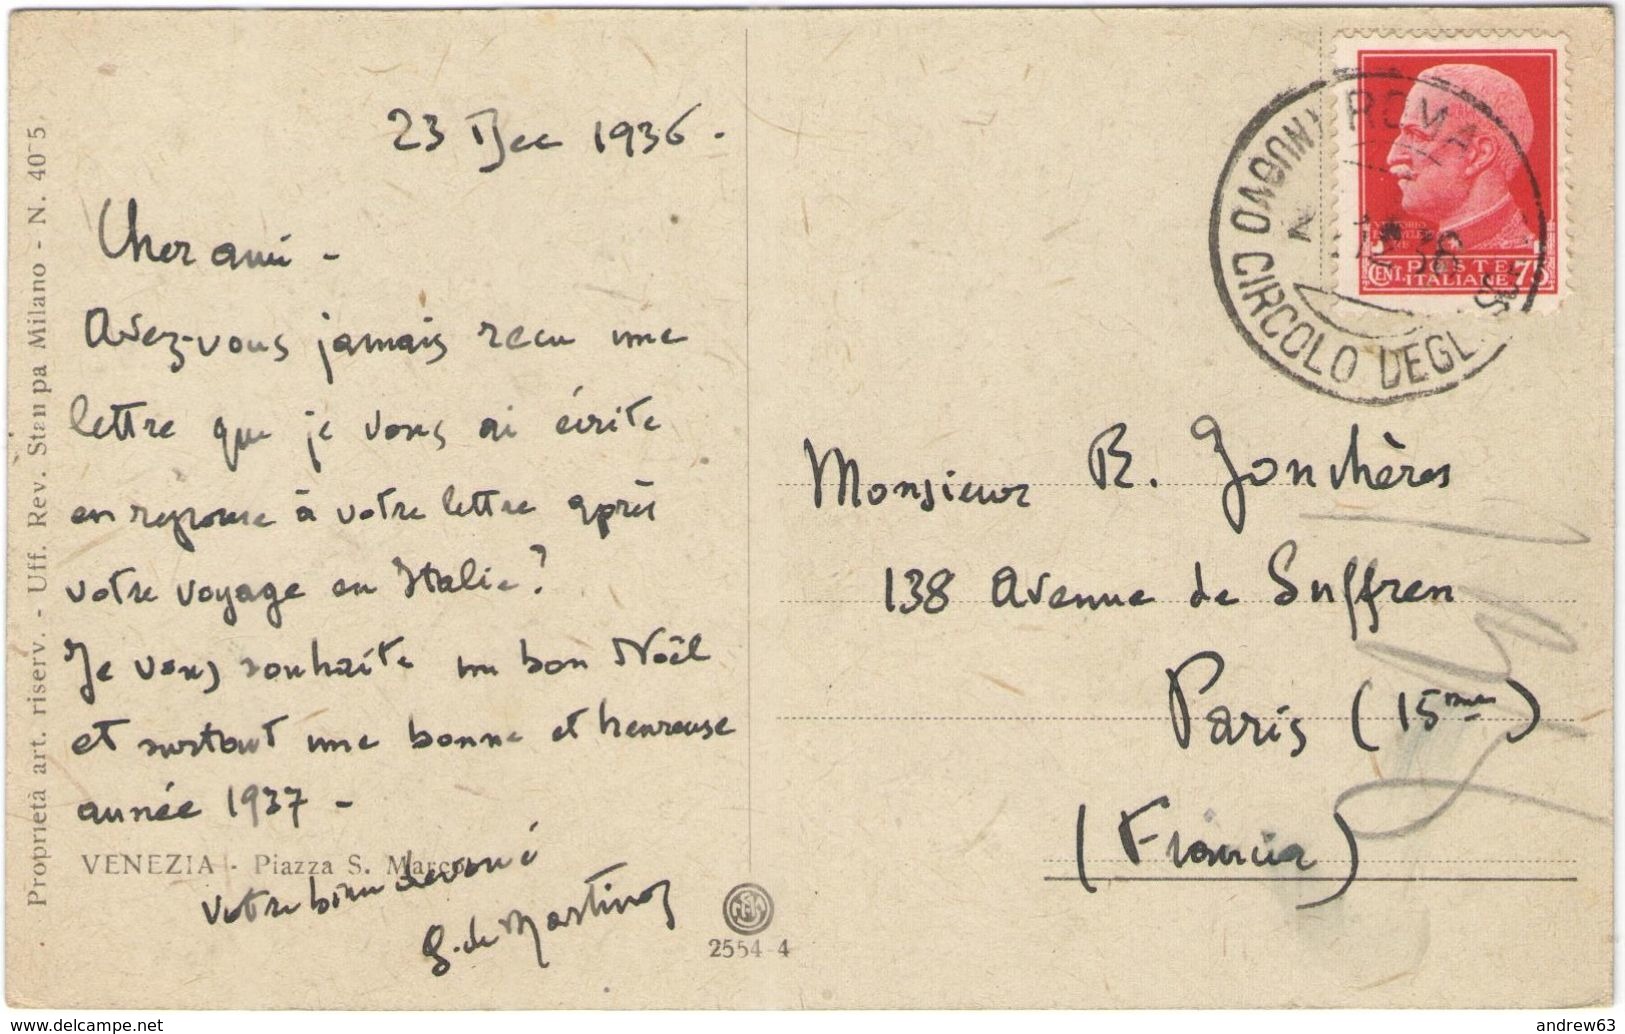 23 Dec 1936.
Cher ami -
Avez-vous jamais recu une
lettre que je vous ai écrite
en reponse à votre lettre après
votre voyage en Italie?
Je vous souhaite un bon Noël
et surtout une bonne et heureuse
année 1937 -
VENEZIA - Piazza S. Marco
Votre bien devoué
G. de Martino
Proprietà art. riserv. - Uff. Rev. Stampa Milano - N. 40-5
2554-4
ROMA
NUOVO CIRCOLO DEGLI
12 36
POSTE
ITALIANE
CENT 75
Monsieur R. Jonchères
138 Avenue de Suffren
Paris (15me)
(Francia)
www.delcampe.net
andrew63